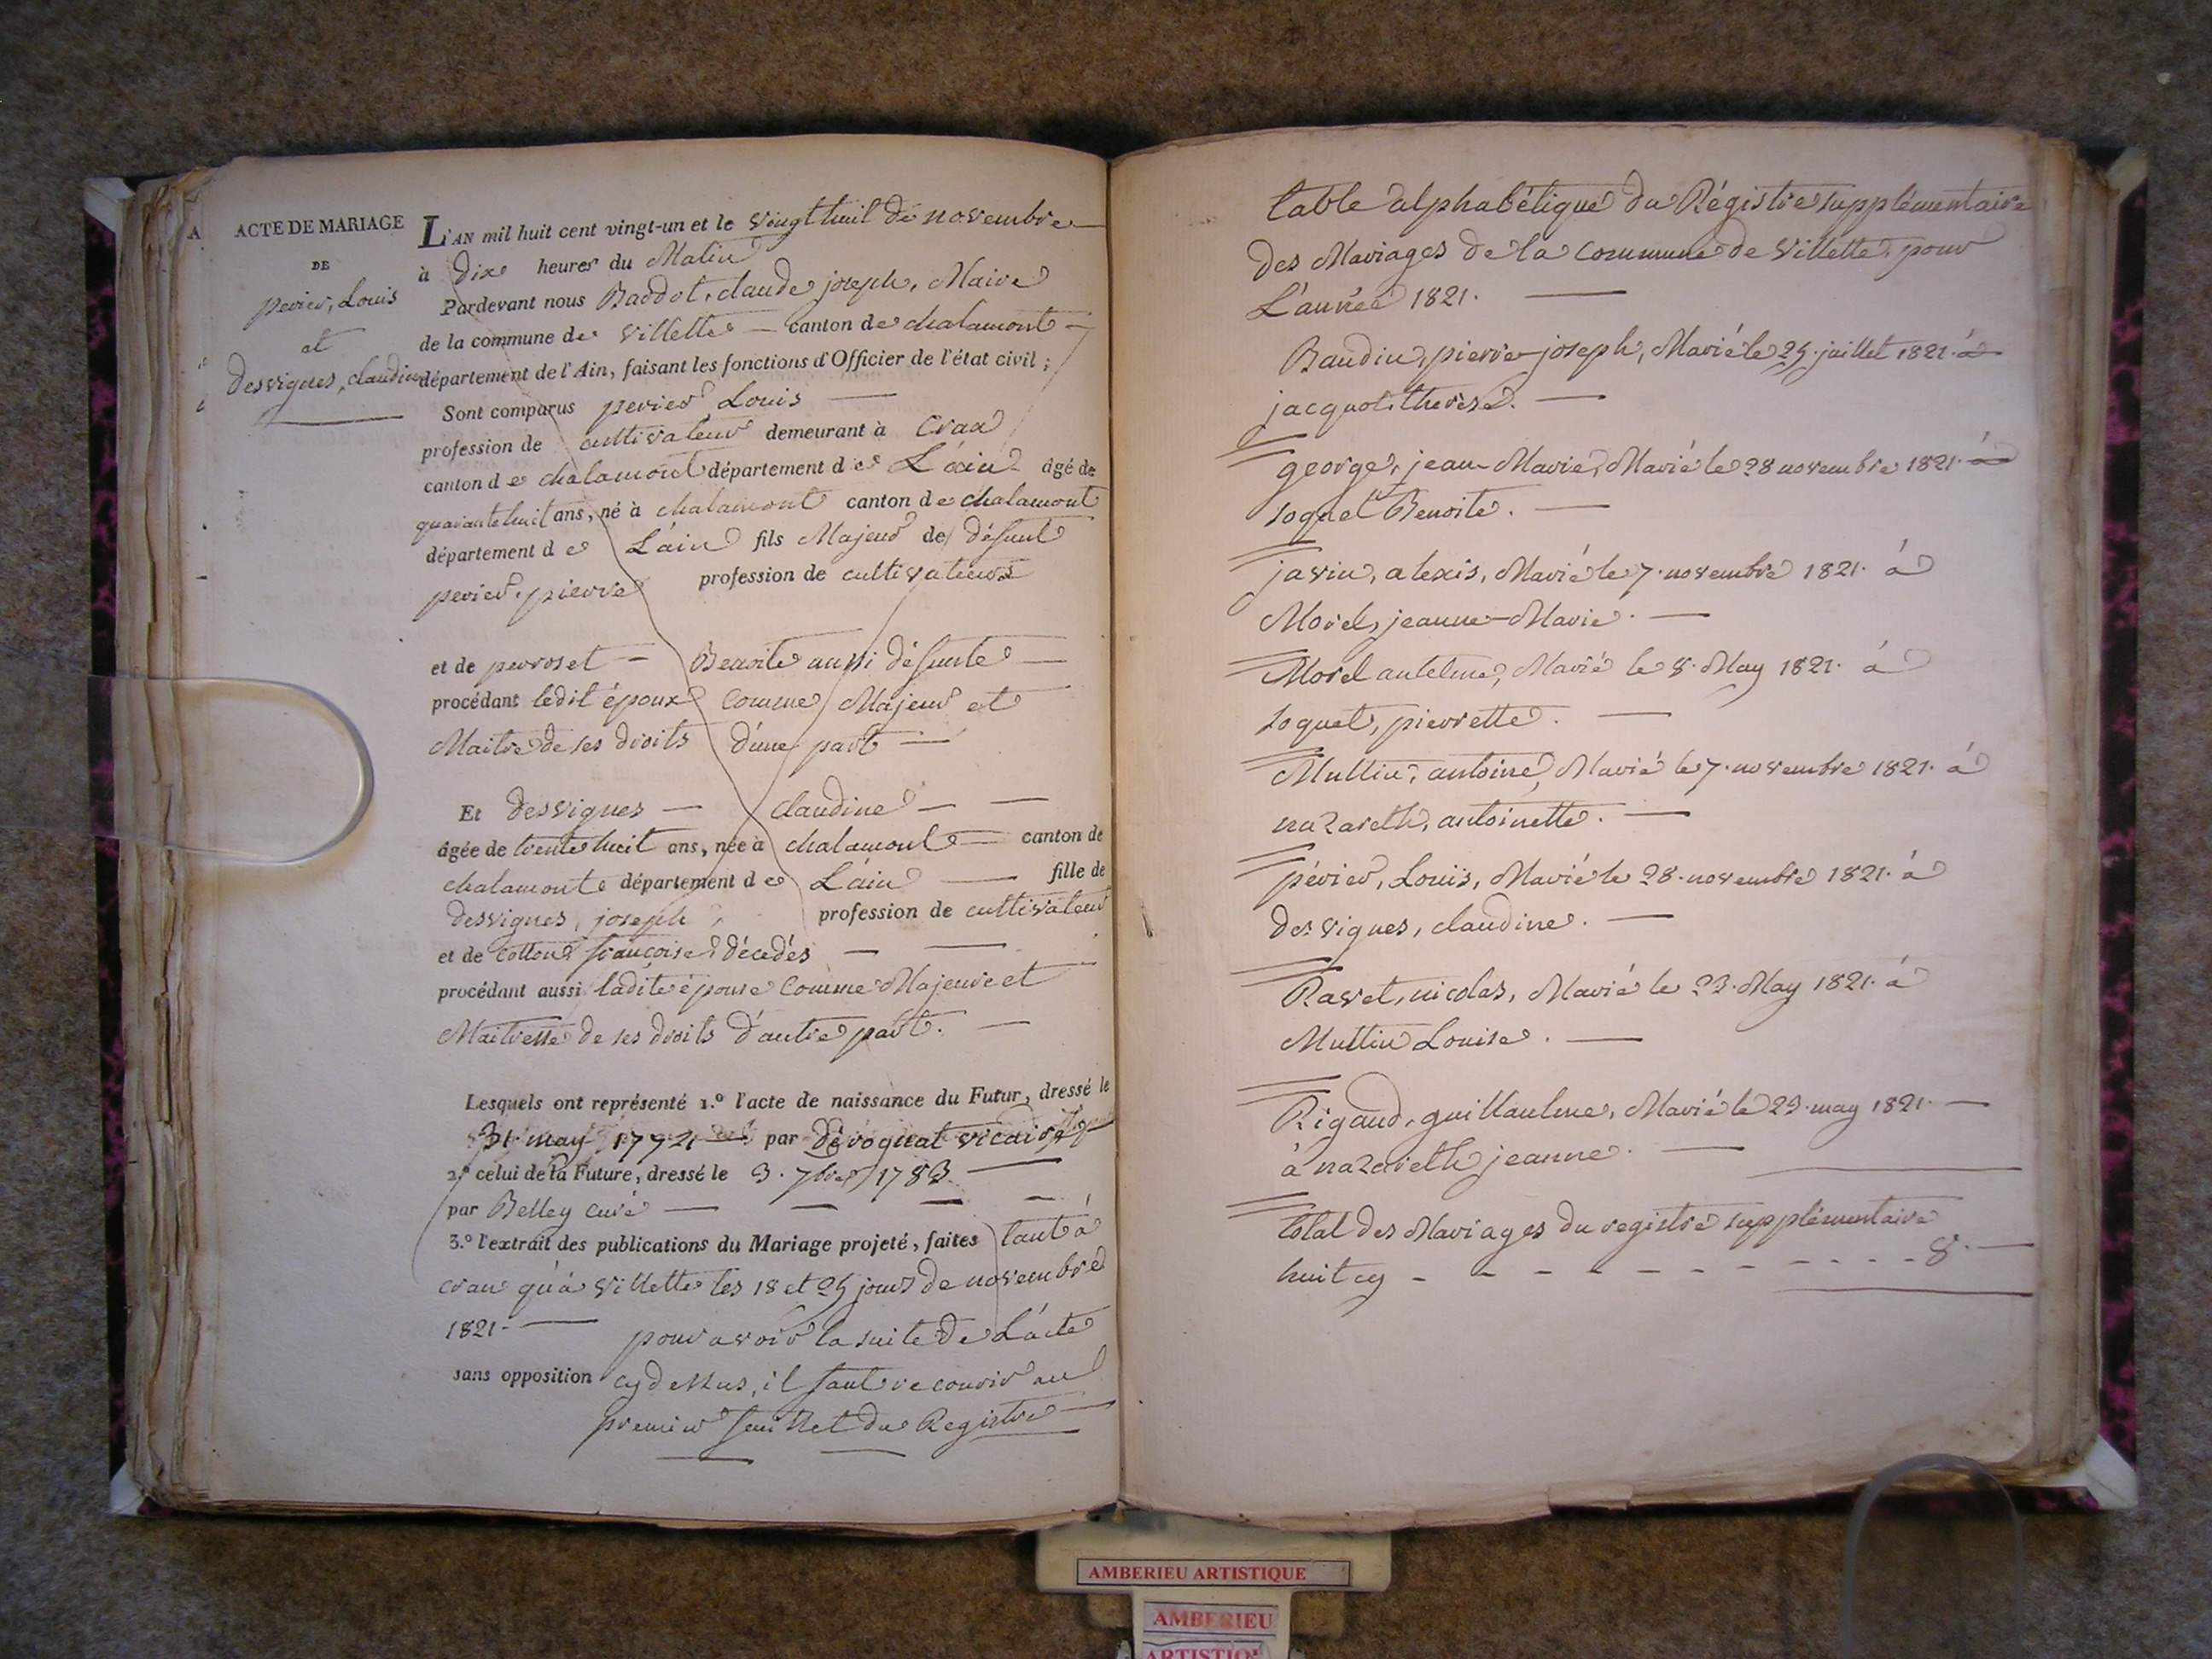 ACTE DE MARIAGE
DE
perier, Louis
et
desvignes, claudine
L'AN mil huit cent vingt-un et le vingt huit de novembre
à dix heures du Matin
Pardevant nous Baddot, claude joseph, Maire
de la commune de villette canton de chalamont
département de l'Ain, faisant les fonctions d'Officier de l'état civil ;
Sont comparus perier Louis
profession de cultivateur demeurant à Cran
canton de chalamont département de L'ain âgé de
quarante huit ans, né à chalamont canton de chalamont
département de L'ain fils Majeur de défunt
perier, pierre profession de cultivateurs
et de perroset Benoite aussi défunte
procédant ledit époux Comme Majeur et
Maitre de ses droits d'une part
Et desvignes claudine
âgée de trente huit ans, née à chalamont canton de
chalamont département de L'ain fille de
desvignes, joseph profession de cultivateur
et de Cotton françoise décédés
procédant aussi ladite épouse Comme Majeure et
Maitresse de ses droits d'autre part.
Lesquels ont représenté 1.º l'acte de naissance du Futur, dressé le
31 may 1772 par dévoguat vicaire
2.º celui de la Future, dressé le 3. 7bre 1783
par Belley curé
3.º l'extrait des publications du Mariage projeté, faites tant à
cran qu'à villette les 18 et 25 jours de novembre
1821-
pour avoir la suite de L'acte
sans opposition cy dessus, il faut recourir au
premier feuillet du Registre
table alphabétique du Régistre supplémentaire
des Mariages de la commune de villette, pour
L'année 1821.
Baudin, pierre-joseph, Marié le 25. juillet 1821. à
jacquot, therese.
george, jean-Marie, Marié le 28 novembre 1821. à
soquet Benoite.
javin, alexis, Marié le 7. novembre 1821. à
Morel, jeanne-Marie.
Morel antelme, Marié le 8. May 1821. à
soquet, pierrette.
Mullin, antoine, Marié le 7. novembre 1821. à
nazareth, antoinette.
périer, Louis, Marié le 28. novembre 1821. à
desvignes, claudine.
Ravet, nicolas, Marié le 23. May 1821. à
Mullin Louise.
Rigaud, guillaulme, Marié le 23. may 1821.
à nazareth jeanne.
total des Mariages du registre supplémentaire
huit cy - - - - - - - - - - - 8.
AMBERIEU ARTISTIQUE
AMBERIEU
ARTISTIQUE